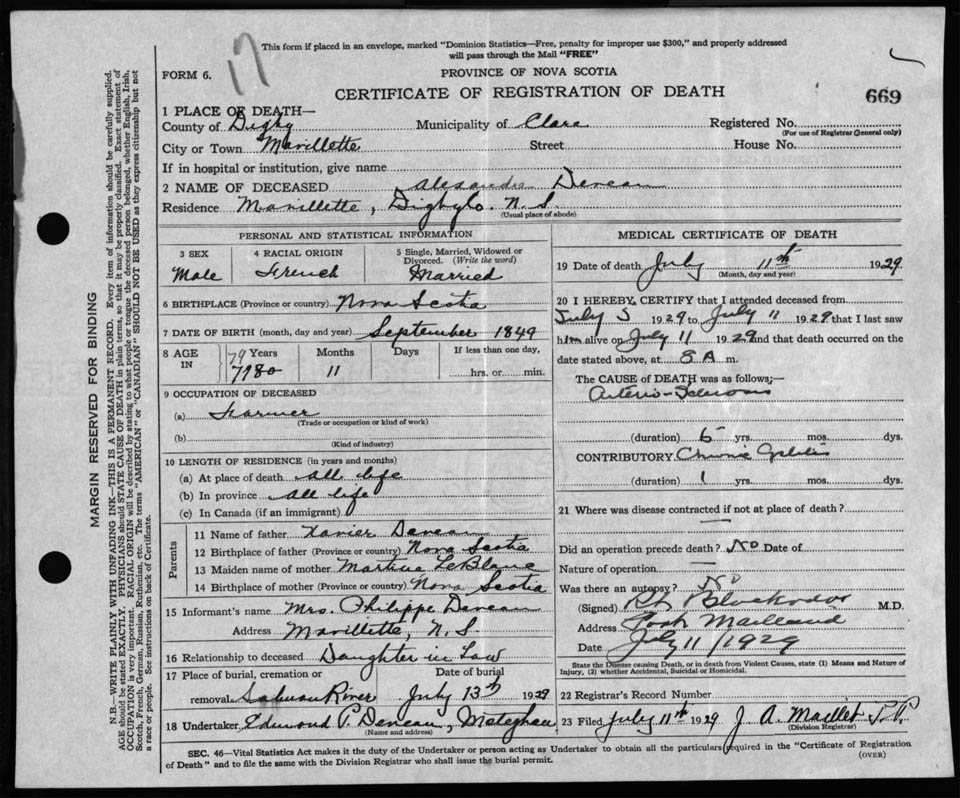 17
This form if placed in an envelope, marked "Dominion Statistics—Free, penalty for improper use $300," and properly addressed
will pass through the Mail "FREE"
FORM 6.
PROVINCE OF NOVA SCOTIA
CERTIFICATE OF REGISTRATION OF DEATH
669
1 PLACE OF DEATH—
County of Digby Municipality of Clare Registered No.
(For use of Registrar General only)
City or Town Mavillette Street House No.
If in hospital or institution, give name
2 NAME OF DECEASED Alexandre Deveau
Residence Mavillette, Digby Co. N.S.
(Usual place of abode)
PERSONAL AND STATISTICAL INFORMATION
3 SEX 4 RACIAL ORIGIN 5 Single, Married, Widowed or
Divorced. (Write the word)
Male French Married
6 BIRTHPLACE (Province or country) Nova Scotia
7 DATE OF BIRTH (month, day and year) September 1849
8 AGE IN 79 Years Months Days If less than one day,
7980 11 hrs. or min.
9 OCCUPATION OF DECEASED
(a) Farmer
(Trade or occupation or kind of work)
(b)
(Kind of industry)
10 LENGTH OF RESIDENCE (in years and months)
(a) At place of death all life
(b) In province all life
(c) In Canada (if an immigrant)
Parents
11 Name of father Xavier Deveau
12 Birthplace of father (Province or country) Nova Scotia
13 Maiden name of mother Martine LeBlanc
14 Birthplace of mother (Province or country) Nova Scotia
15 Informant's name Mrs. Philippe Deveau
Address Mavillette, N.S.
16 Relationship to deceased Daughter in Law
17 Place of burial, cremation or Date of burial
removal Salmon River July 13th 1929
18 Undertaker Edmond P. Deveau, Meteghan
(Name and address)
MEDICAL CERTIFICATE OF DEATH
19 Date of death July 11th 1929.
(Month, day and year)
20 I HEREBY CERTIFY that I attended deceased from
July 5 1929 to July 11 1929 that I last saw
him alive on July 11 1929 and that death occurred on the
date stated above, at 8 A m.
The CAUSE of DEATH was as follows;—
Arterio-Sclerosis
(duration) 5 yrs. mos. dys.
CONTRIBUTORY Chronic
(duration) 1 yrs. mos. dys.
21 Where was disease contracted if not at place of death?
—
Did an operation precede death? No Date of
Nature of operation —
Was there an autopsy? No
(Signed) M.D.
Address Port Maitland
Date July 11/1929
State the Disease causing Death, or in death from Violent Causes, state (1) Means and Nature of
Injury, (2) whether Accidental, Suicidal or Homicidal.
22 Registrar's Record Number
23 Filed July 11th 1929 J. A. Maillet
(Division Registrar)
SEC. 46—Vital Statistics Act makes it the duty of the Undertaker or person acting as Undertaker to obtain all the particulars required in the "Certificate of Registration
of Death" and to file the same with the Division Registrar who shall issue the burial permit.
(OVER)
MARGIN RESERVED FOR BINDING
N.B.—WRITE PLAINLY WITH UNFADING INK—THIS IS A PERMANENT RECORD. Every item of information should be carefully supplied.
AGE should be stated EXACTLY. PHYSICIANS should STATE CAUSE OF DEATH in plain terms, so that it may be properly classified. Exact statement of
OCCUPATION is very important. RACIAL ORIGIN will be described by stating to what people or tongue the deceased person belonged, whether English, Irish,
Scotch, French, German, Russian, Ruthenian, etc. The terms "AMERICAN" or "CANADIAN" SHOULD NOT BE USED as they express citizenship but not
a race or people. See instructions on back of Certificate.